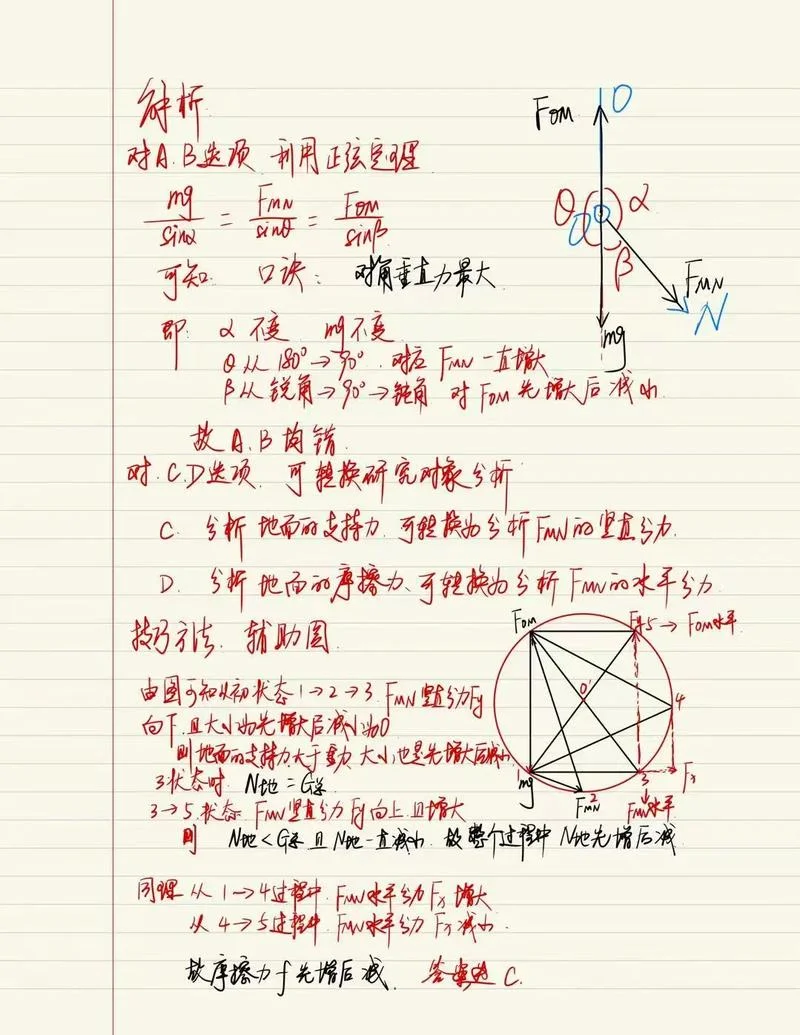 解析
对A.B选项 利用正弦定理
mg/sinα = FMN/sinθ = FOM/sinβ
可知 口诀: 对角垂直力最大
即: α不变 mg不变
θ从180°→90°. 对应FMN一直增大
β从锐角→90°→钝角 对FOM先增大后减小.
故A.B均错.
对.C.D选项. 可转换研究对象分析
C. 分析地面的支持力.可转换为分析FMN的竖直分力.
D. 分析地面的摩擦力、可转换为分析FMN的水平分力
技巧方法. 辅助圆.
由图可知从初状态1→2→3. FMN竖直分力Fy
向下.且大小为先增大后减小为0
则地面的支持力大于重力.大小也是先增大后减小
3状态时. N地=G总
3→5.状态 FMN竖直分力Fy向上且增大
则 N地<G总且N地一直减小.故整个过程中N地先增后减
同理.从1→4过程中.FMN水平分力Fx增大
从4→5过程中.FMN水平分力Fx减小.
故摩擦力f先增后减. 答案选C.
FOM
O
θ
α
β
FMN
N
mg
FOM
5→FOM水平
O'
4
1
mg
2
FMN
3
Fx
FMN水平